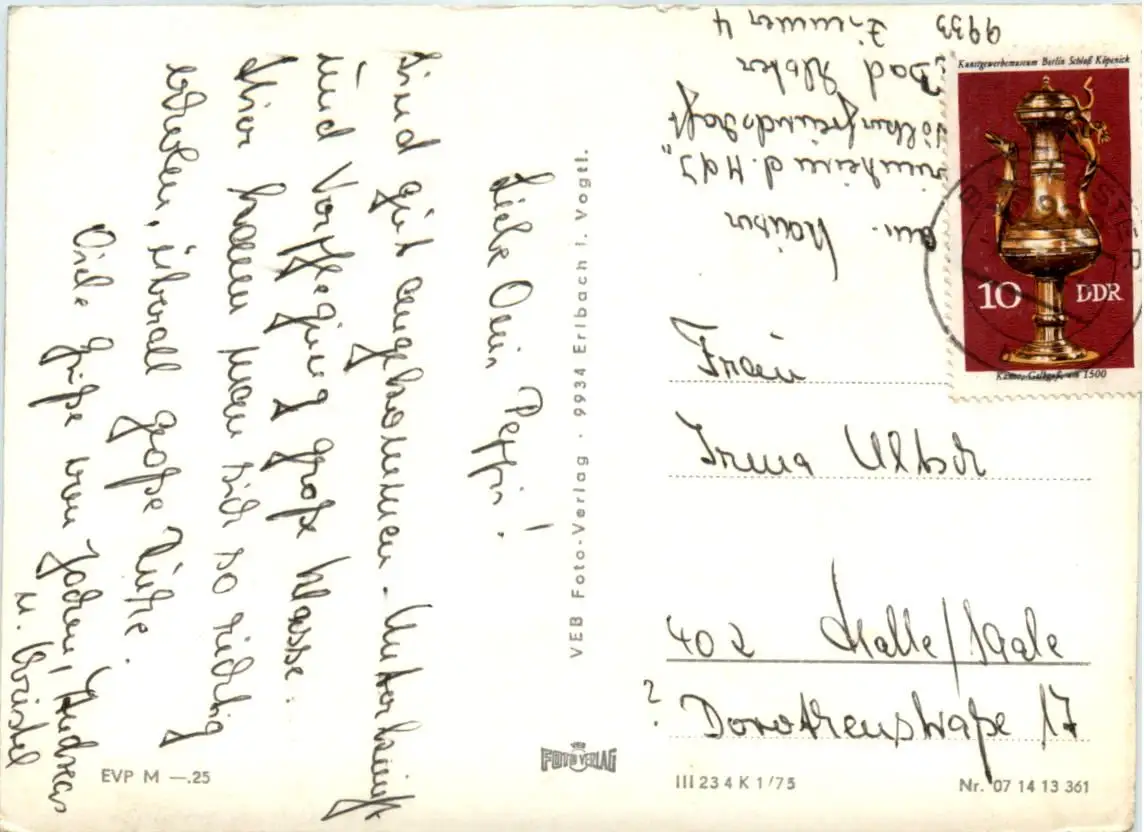 Liebe Omi Peppi!
Sind gut angekommen. Unterkunft
und Verpflegung große Klasse.
Hier kann man sich so richtig
erholen, überall große Ruhe.
Viele Grüße von Jochen, Andreas
u. Christel
VEB Foto-Verlag · 9934 Erlbach i. Vogtl.
Völkerfreundschaft
Bad Elster
Zimmer 4
9933
Kunstgewerbemuseum Berlin Schloß Köpenick
10 DDR
Kanne, Gelbguß, um 1500
Frau
Irma Ultsch
402 Halle/Saale
? Dorotheenstraße 17
EVP M —.25
FOTO VERLAG
III 23 4 K 1/75
Nr. 07 14 13 361